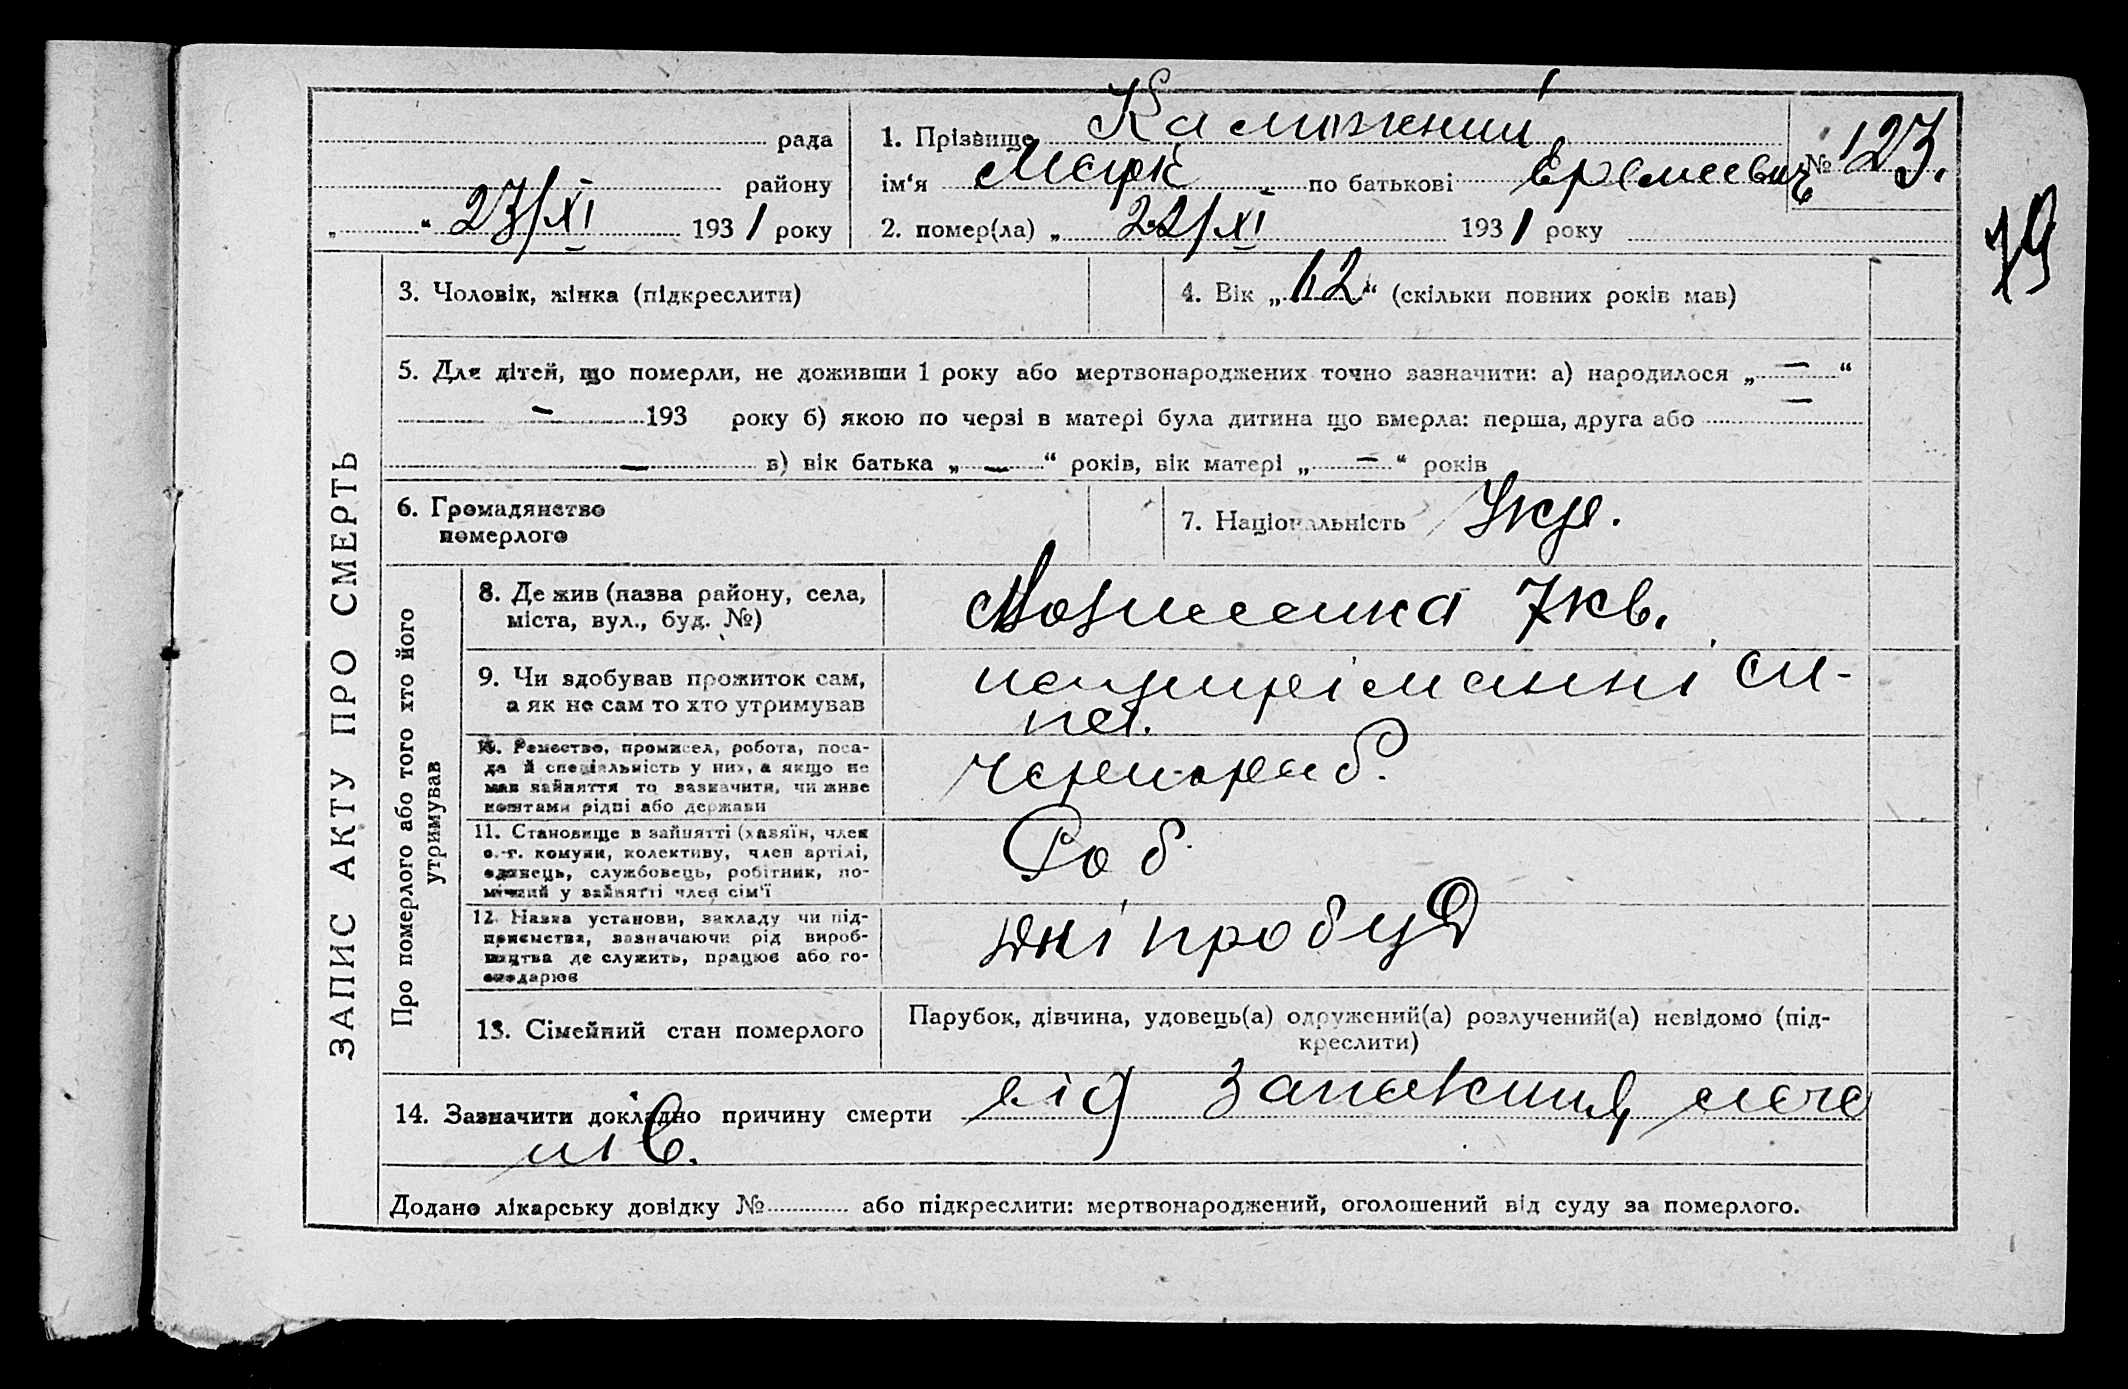 рада
району
„ “ 23/XI 1931 року
1. Прізвище
ім‘я Марк по батькові Еремеевич
№ 123.
2. помер(ла) „ 22/XI 1931 року
79
ЗАПИС АКТУ ПРО СМЕРТЬ
3. Чоловік, жінка (підкреслити)
4. Вік „ 62 “ (скільки повних років мав)
5. Для дітей, що померли, не доживши 1 року або мертвонароджених точно зазначити: а) народилося „ — “
— 193 року б) якою по черзі в матері була дитина що вмерла: перша, друга або —
— в) вік батька „ — “ років, вік матері „ — “ років
6. Громадянство
померлого
7. Національність Укр.
Про померлого або того хто його
утримував
8. Де жив (назва району, села,
міста, вул., буд. №)
7 кв.
9. Чи здобував прожиток сам,
а як не сам то хто утримував
на
10. Ремество, промисел, робота, поса-
да й спеціяльність у них, а якщо не
мав зайняття то зазначити, чи живе
коштами рідні або держави
чернораб.
11. Становище в зайнятті (хазяїн, член
с.-г. комуни, колективу, член артілі,
одинець, службовець, робітник, по-
мічний у зайнятті член сім‘ї
Роб.
12. Назва установи, закладу чи під-
приємства, зазначаючи рід вироб-
ництва де служить, працює або го-
сподарює
Дніпробуд
13. Сімейний стан померлого
Парубок, дівчина, удовець(а) одружений(а) розлучений(а) невідомо (під-
креслити)
14. Зазначити докладно причину смерти від
Додано лікарську довідку № або підкреслити: мертвонароджений, оголошений від суду за померлого.